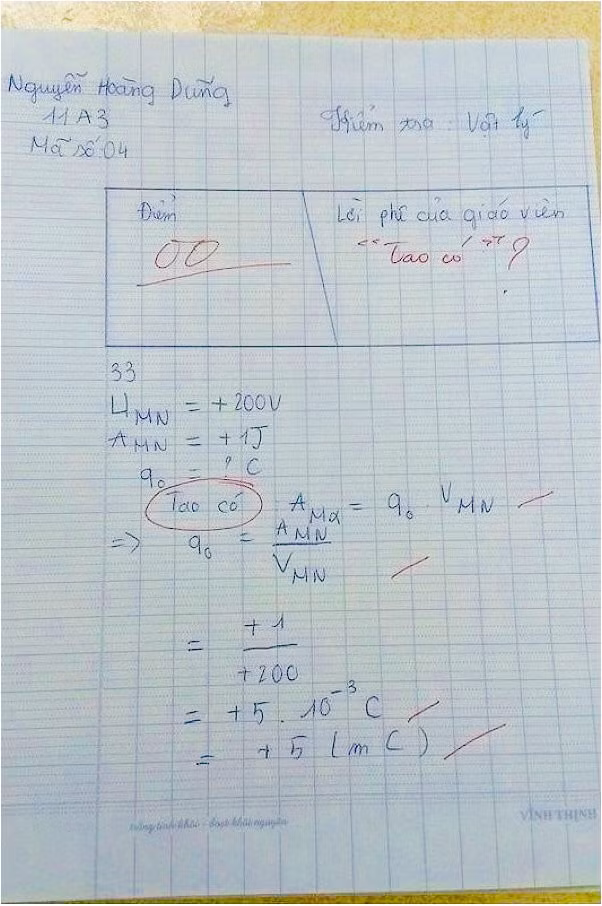 Nguyễn Hoàng Dũng
11A3
Mã số 04
Kiểm tra: Vật lý
Điểm
00
Lời phê của giáo viên
"Tao có"?
33
U_MN = +200V
A_MN = +1J
q₀ = ? C
Tao có A_Md = q₀ . V_MN
=> q₀ = A_MN / V_MN
= +1 / +200
= +5 . 10⁻³ C
= +5 (mC)
VĨNH THỊNH